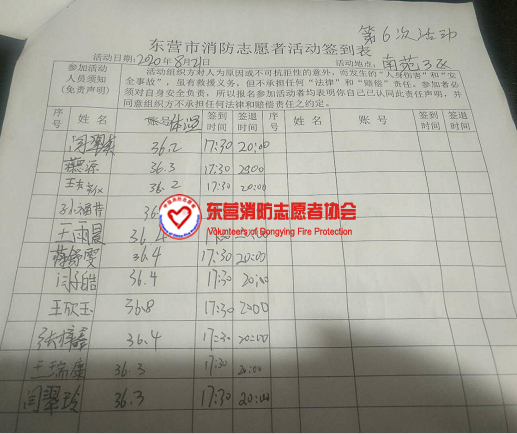 第6次活动
东营市消防志愿者活动签到表
活动日期: 2020年8月21 活动地点: 南苑
参加活动人员须知(免责声明) 活动组织方对人为原因或不可抗拒性的意外,而发生的“人身伤害”和“安
全事故”,虽有救援义务,但不承担任何“法律”和“赔偿”责任。参加者必
须对自身安全负责,所以报名参加活动者均表明你自己已认同此责任声明,并
同意组织方不承担任何法律和赔偿责任之约定。
序号 姓名 账号体温 签到时间 签退时间 序号 姓名 账号 签到时间 签退时间
闫翠英 36.2 17:30 20:00
燕源 36.3 17:30 20:00
36.2 17:30 20:00
孙福昔 36.
东营消防志愿者协会
Volunteers of Dongying Fire Protection
王雨晨 36.4
燕舒雯 36.4 17:30 20:00
闫子皓 36.4 17:30 20:00
王欣玉 36.8 17:30 20:00
36.4 17:30 20:00
王瑞康 36.3 17:30 20:00
闫翠玲 36.3 17:30 20:00